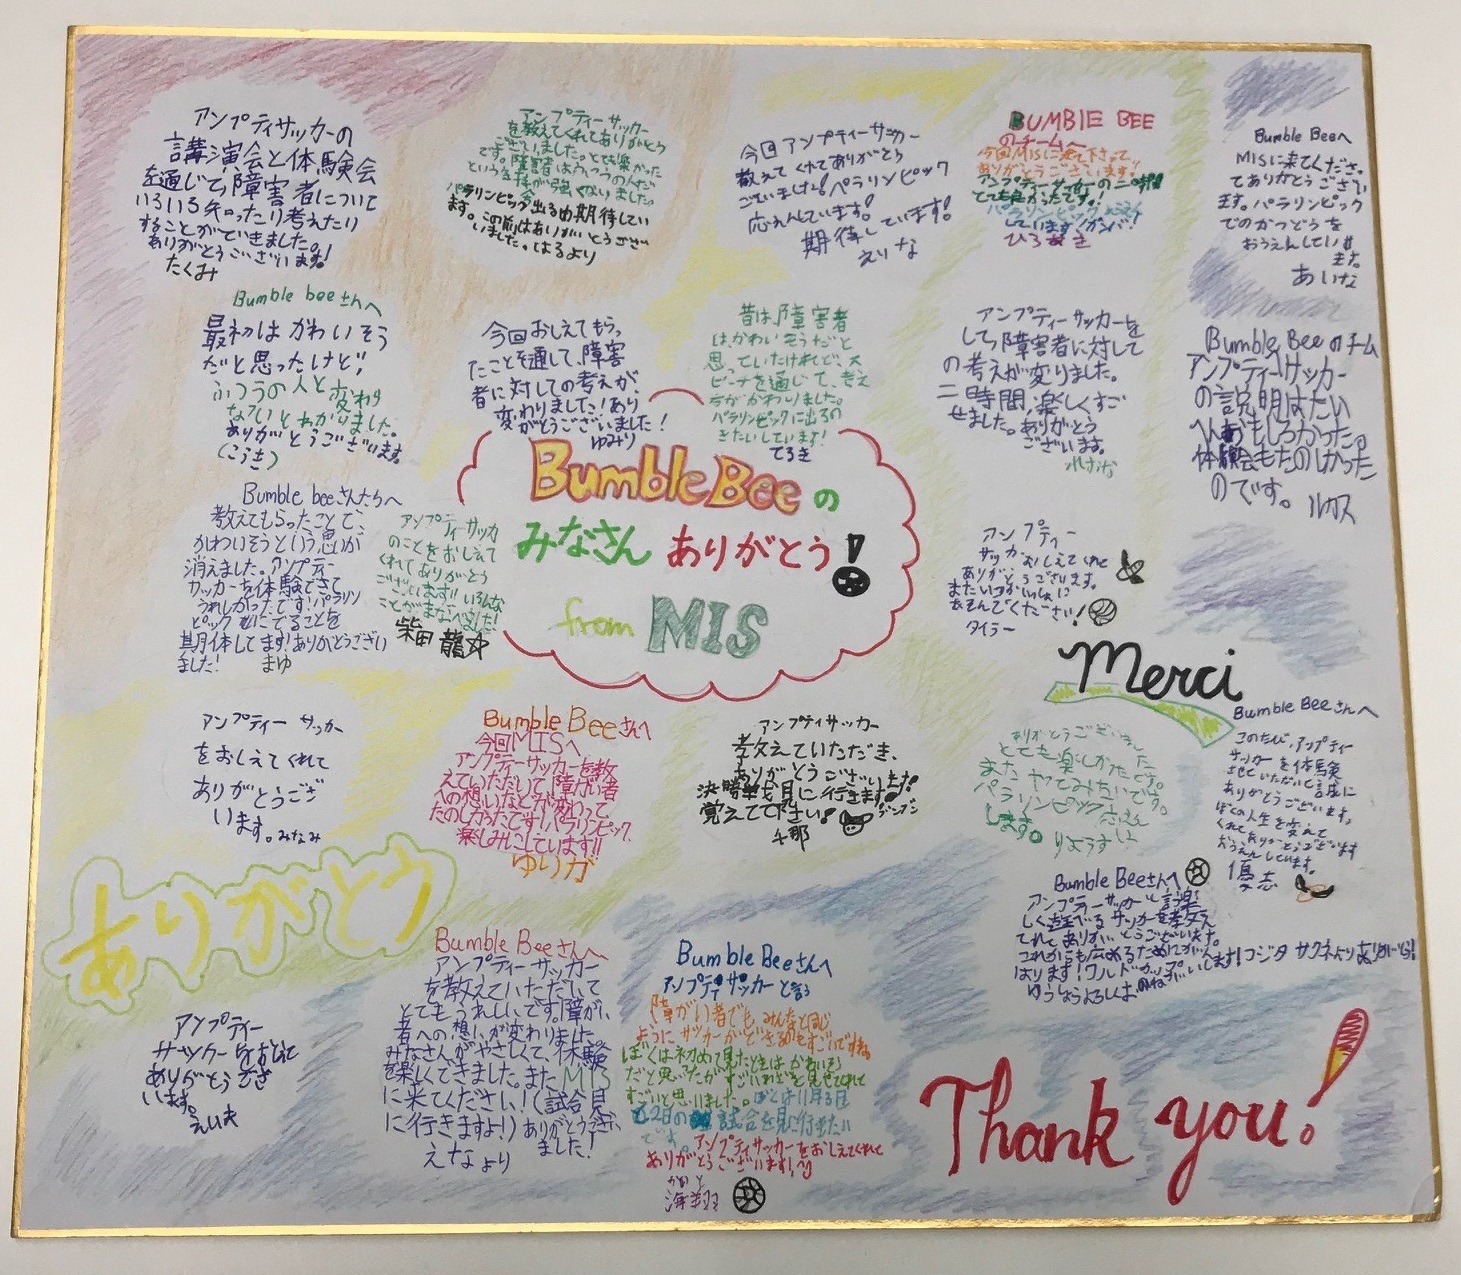 アンプティサッカーの
講演会と体験会
を通じて、障害者について
いろいろ知ったり考えたり
することができました。
ありがとうございます!
たくみ
アンプティサッカー
を教えてくれてありがとう
ございました。とても楽かった
です。障害者はふつうの人だ
という気持が強くなりました。
パラリンピック出るの期待してい
ます。この前はありがとうござ
いました。はるより
今回アンプティーサッカー
教えてくれてありがとう
ございました!パラリンピック
応えんしています!
期待しています!
えりな
BUMBlE BEE
のチームへ
今回MISに来て下さって、
ありがとうございます!
アンプティーサッカーの二時間
とても良かったです!
パラリンピック応えん
しています!ガンバ!
ひろき
Bumble Beeへ
MISに来てくださっ
てありがとうござい
ます。パラリンピック
でのかつどうを
おうえんしてい
ます。
あいな
Bumble beeさんへ
最初はかわいそう
だと思ったけど、
ふつうの人と変わり
ないとわかりました。
ありがとうございます。
(こうき)
今回おしえてもらっ
たことを通して、障害
者に対しての考えが
変わりました!あり
がとうございました!
ゆみり
昔は、障害者
は、かわいそうだと
思っていたけれど、スピーチを通じて、考え
方がかわりました。
パラリンピックに出るの
きたいしています!
てるき
アンプティーサッカーを
して、障害者に対して
の考えが変りました。
二時間、楽しくすご
せました。ありがとう
ございます。
れおな
Bumble Beeのチーム
アンプティーサッカー
の説明はたい
へんおもしろかった。
体験会もたのしかった
のです。ルカス
Bumble beeさんたちへ
教えてもらったことで、
かわいそうという思いが
消えました。アンプティー
サッカーを体験できて
うれしかったです!パラリン
ピックにでることを
期待してます!ありがとうござい
ました! まゆ
アンプティーサッカー
のことをおしえて
くれてありがとう
ございます!!いろんな
ことがまなべました!
柴田 龍
BumbleBeeの
みなさん ありがとう!
from MIS
アンプティー
サッカーおしえてくれて
ありがとうございます。
またいつかいっしょに
あそんでください!
タイラー
Merci
アンプティー サッカー
をおしえてくれて
ありがとうござ
います。みなみ
Bumble Beeさんへ
今回MISへ
アンプティーサッカーを教
えていただいて、障がい者
への想いなどが変わって
たのしかったです!パラリンピック
楽しみにしています!!
ゆりか
アンプティサッカー
教えていただき、
ありがとうございます!
決勝戦見に行きます!
覚えてて下さい!
ありがとうございました
とても楽しかたです。
またやてみたいです。
パラリンピック応えん
します。りょうすけ
Bumble Beeさんへ
このたび、アンプティー
サッカーを体験
させていただいて誠に
ありがとうございます。
ぼくの人生を変えて
くれてありがとうございます
おうえんしています。
優志
ありがとう
Bumble Beeさんへ
アンプティーサッカーを教
えていただいて
とてもうれしいです。障がい
者への想いが変わりました。
みなさんがやさしくて、体験
を楽しくできました。またMIS
に来てください!(試合見
に行きますよ!)ありがとうござい
ました!
えなより
Bumble Beeさんへ
アンプティサッカーと言う
障がい者でもみんなと同じ
ようにサッカーができるのもすごいですね
ぼくは初めて見たときはかわいそう
だと思ったがすごいわざを見せてくれて
すごいと思いました。ぼくは11月3日
の試合を見に行きたい
です。アンプティサッカーをおしえてくれて
ありがとうございます!
かいと
海翔
Bumble Beeさんへ
アンプティーサッカーという楽
しく遊べるサッカーを教え
てくれてありがとうございます。
これからも広めるためにがん
ばります!ワールドカップ
ゆうしょうよろしくおねがいします!フジタ サクネよりありがとう!
アンプティー
サッカーをおしえて
ありがとうござ
います。
えいた
Thank you!